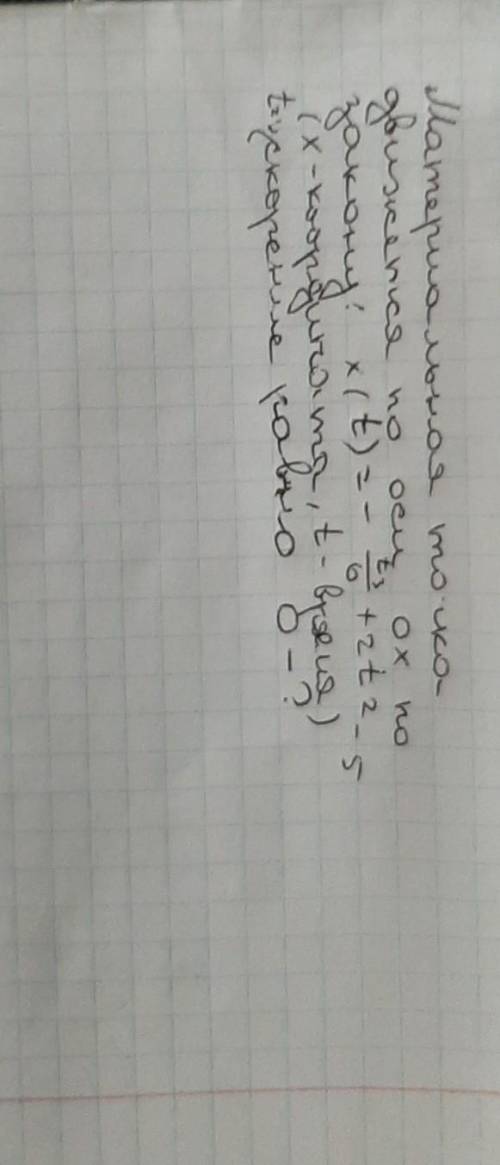 Материальная точка
движется по оси ox по
закону: x(t) = - t³/6 + 2t² - 5
(x - координата, t - время)
t = ускорение равно 0 - ?